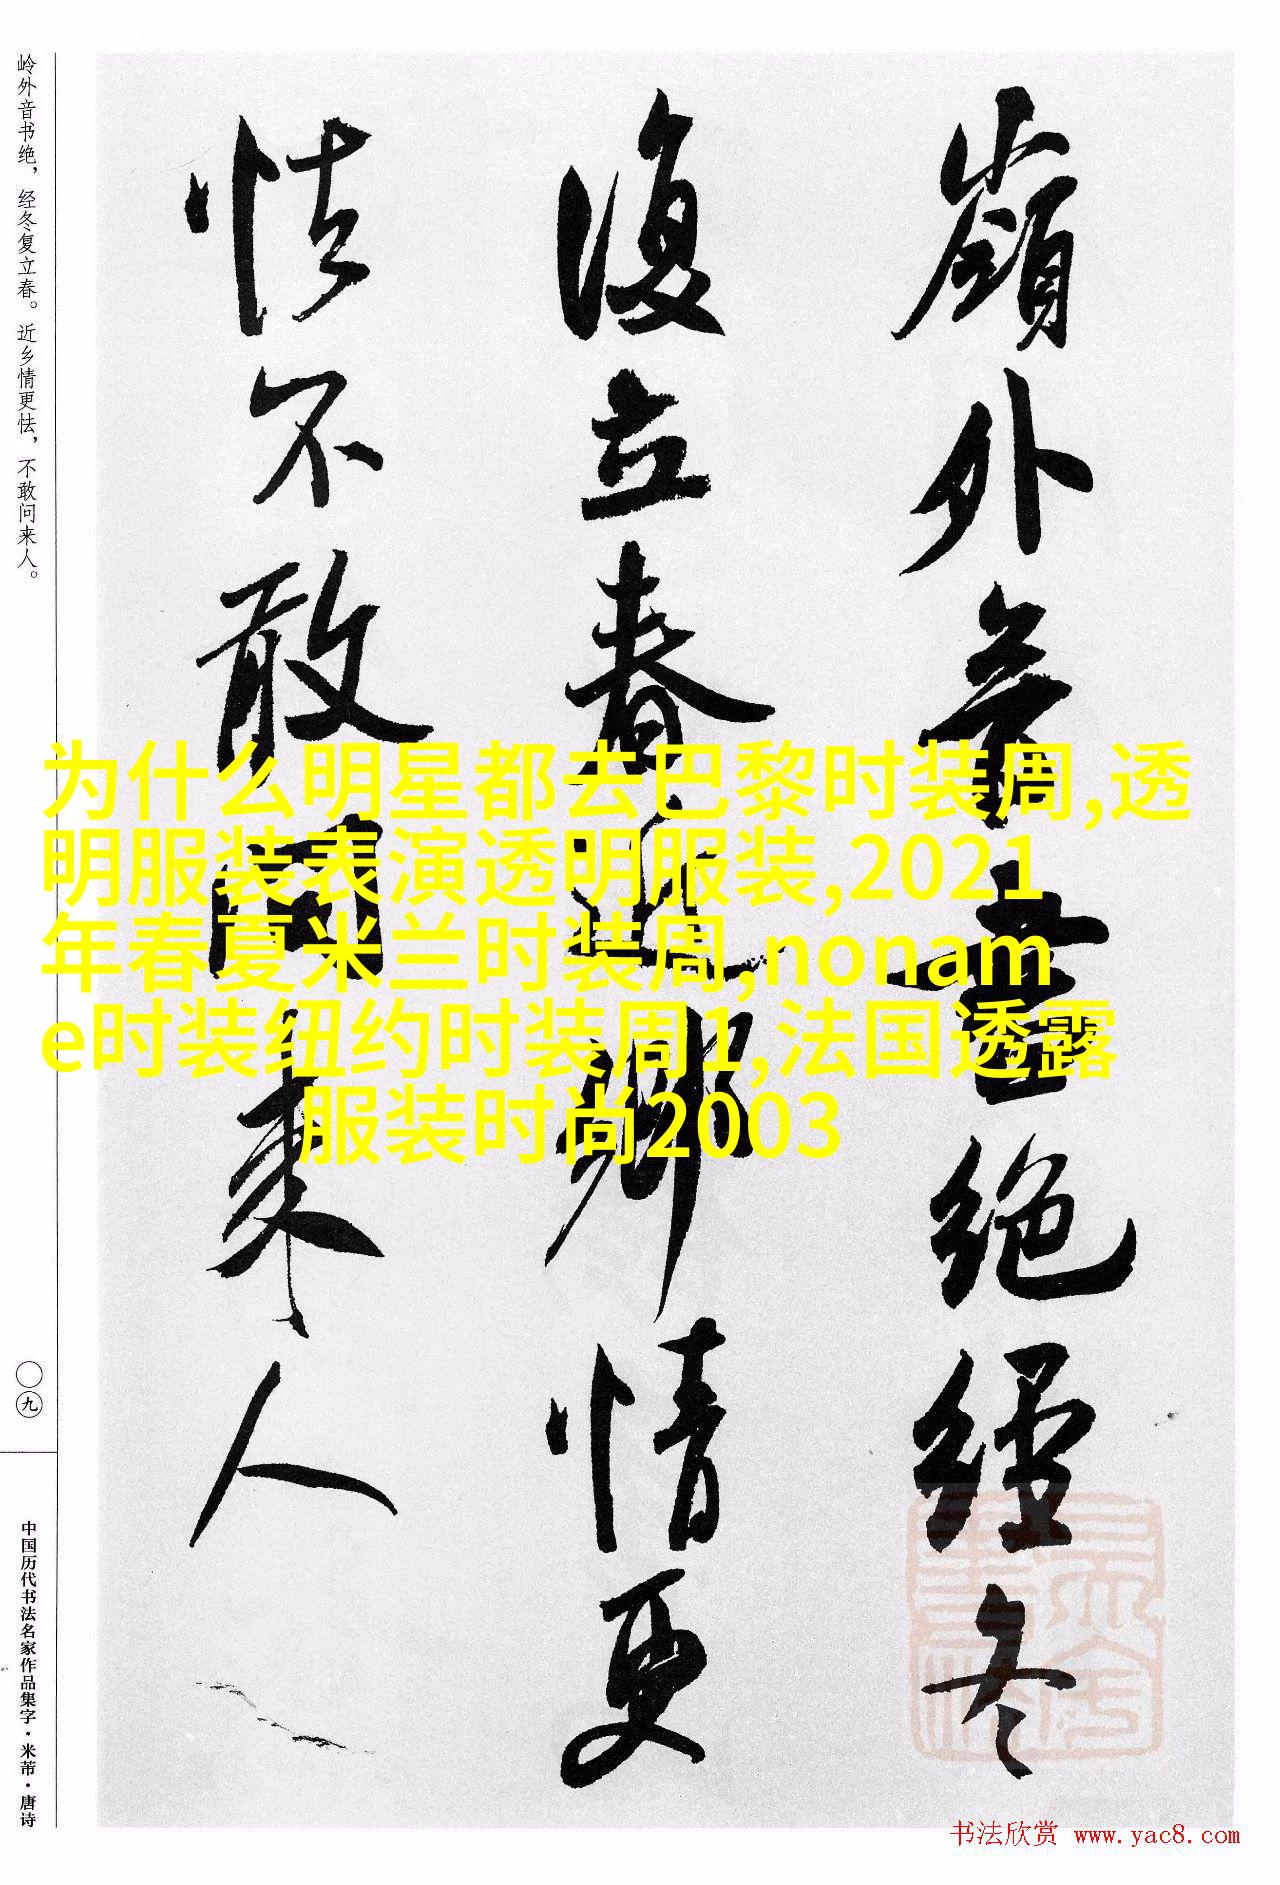 嶺外音書絕經冬
復立春近鄉情更
怯不敢問來人
岭外音书绝，经冬复立春。近乡情更怯，不敢问来人。
〇九
中国历代书法名家作品集字·米芾·唐诗
为什么明星都去巴黎时装周,透
明服装表演透明服装,2021
年春夏米兰时装周,nonam
e时装纽约时装周1,法国透露
服装时尚2003
书法欣赏 www.yac8.com